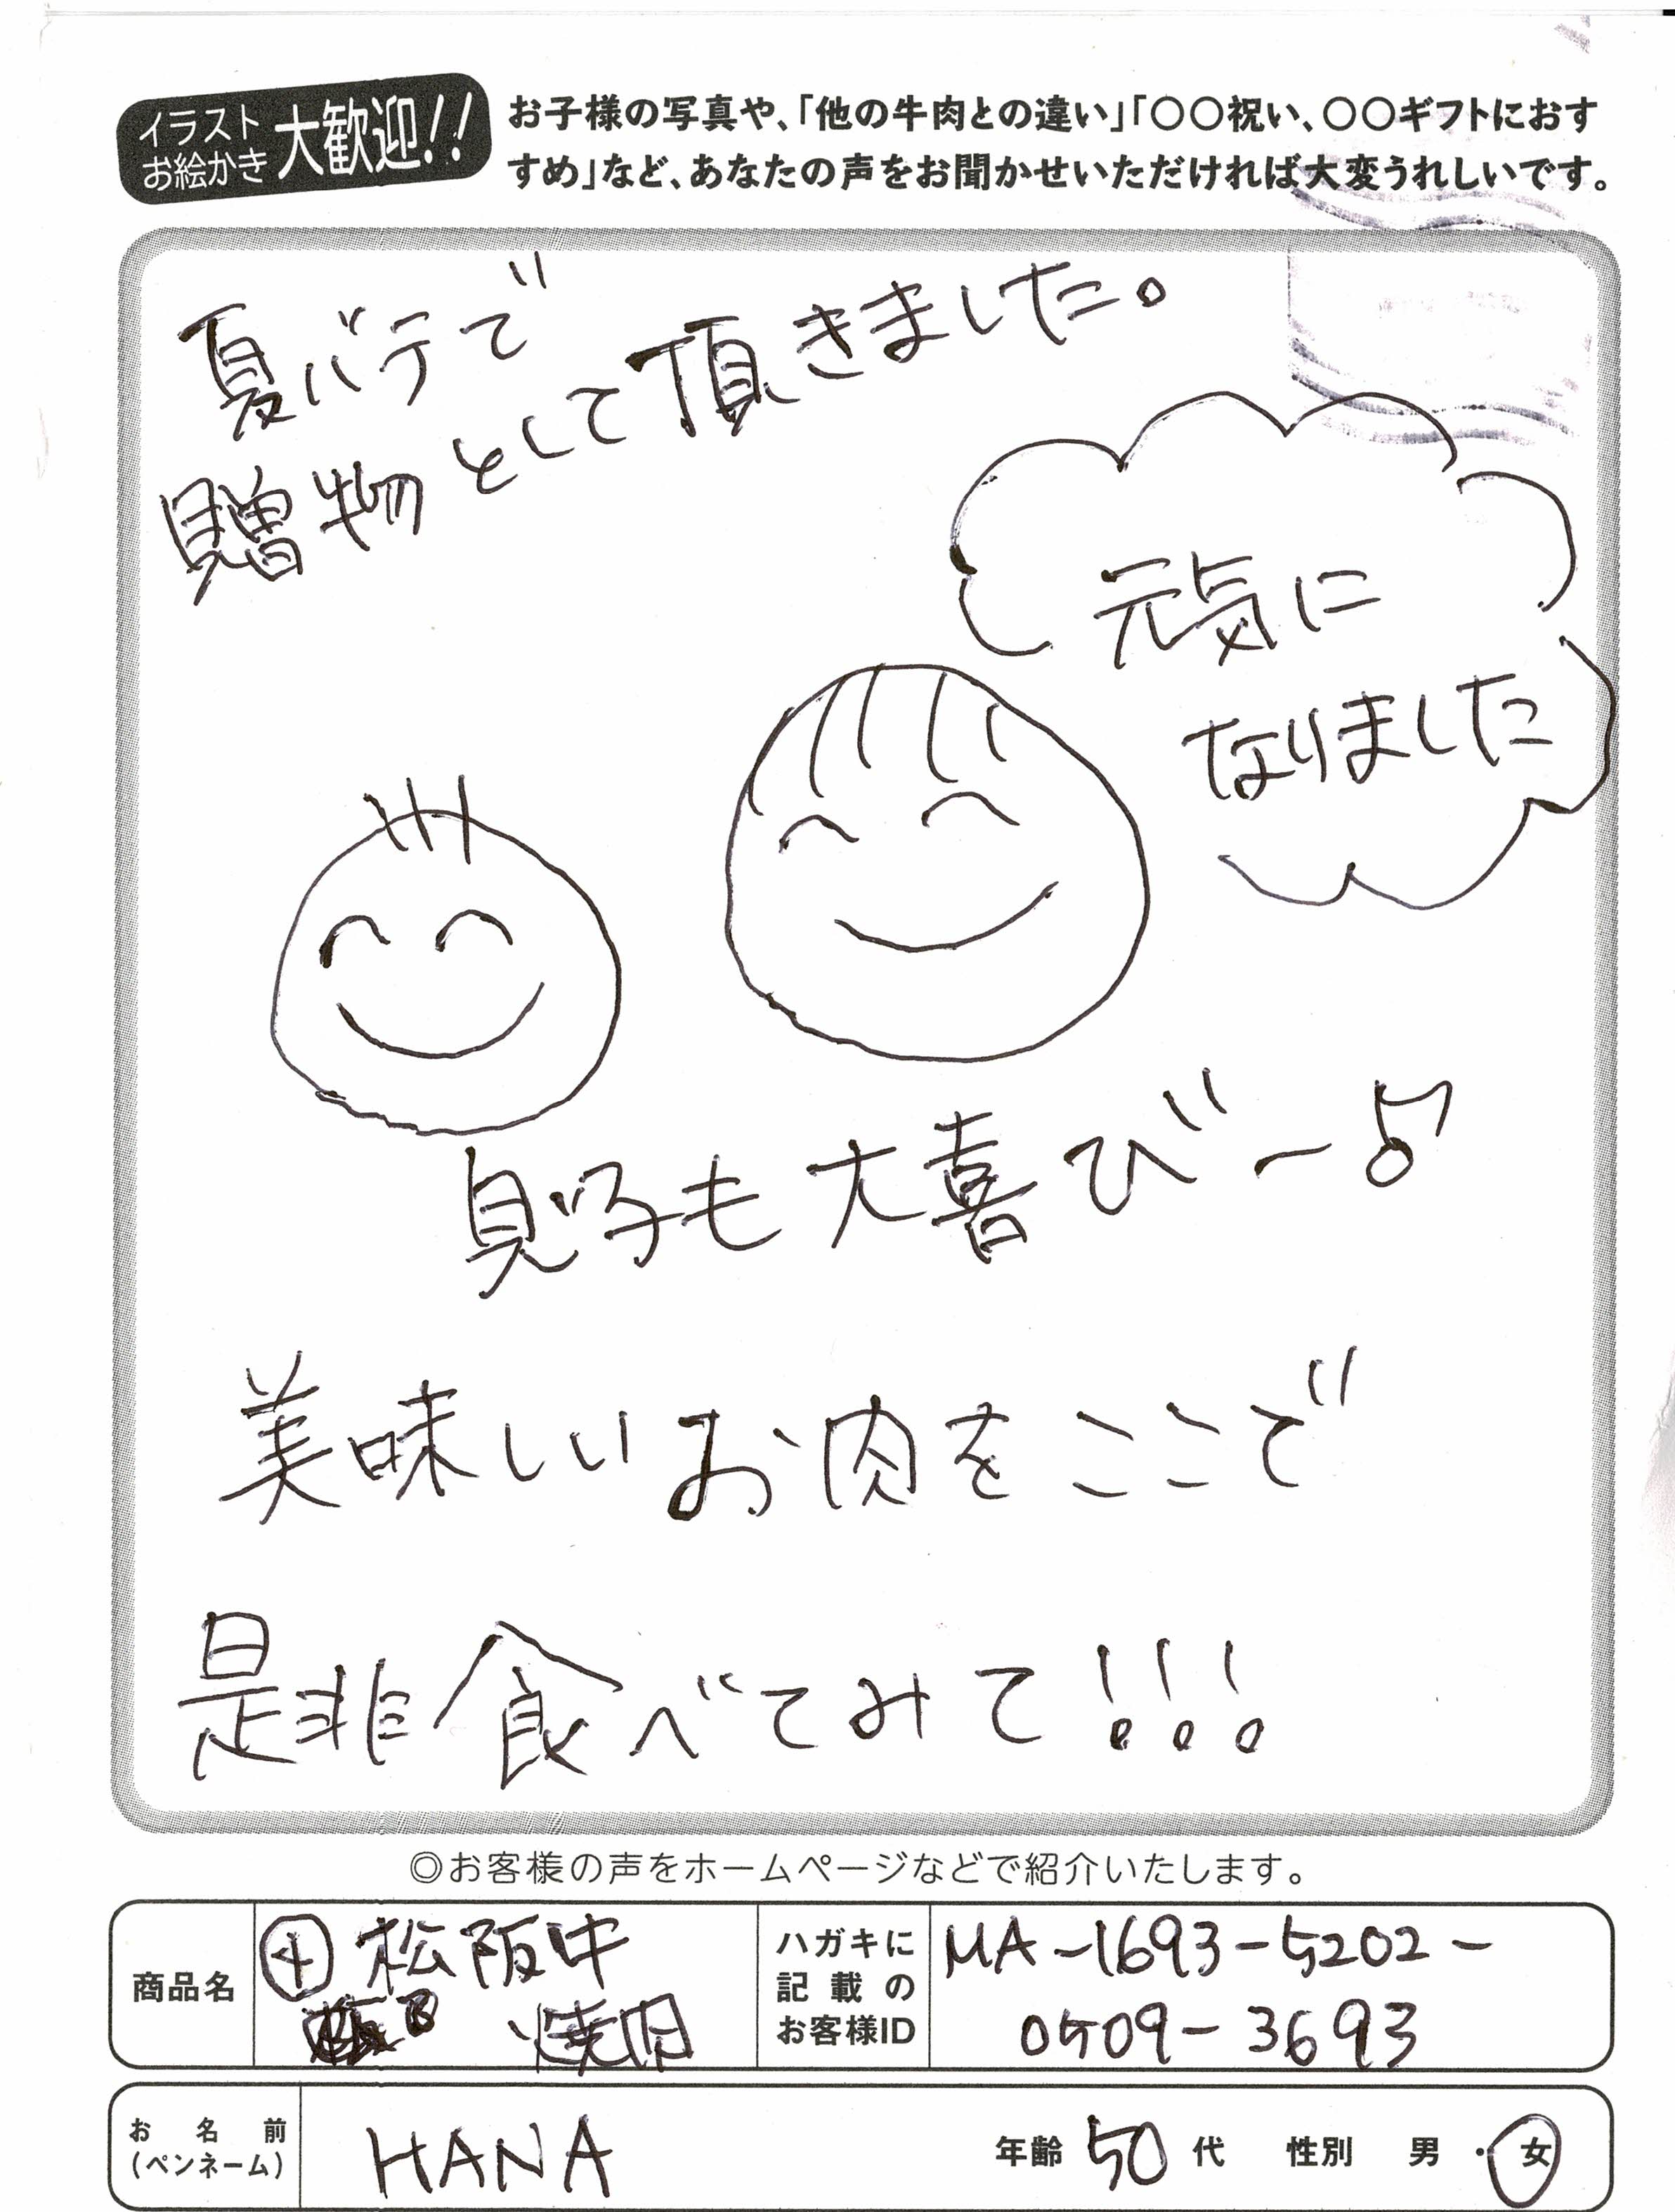 イラスト
お絵かき
大歓迎!!
お子様の写真や、「他の牛肉との違い」「〇〇祝い、〇〇ギフトにおす
すめ」など、あなたの声をお聞かせいただければ大変うれしいです。
夏バテで
贈物として頂きました。
元気に
なりました
息子も大喜びー♪
美味しいお肉をここで
是非食べてみて!!!
◎お客様の声をホームページなどで紹介いたします。
商品名
松阪牛
焼肉
ハガキに
記載の
お客様ID
MA-1693-5202-
0509-3693
お名前
(ペンネーム)
HANA
年齢 50代 性別 男・女